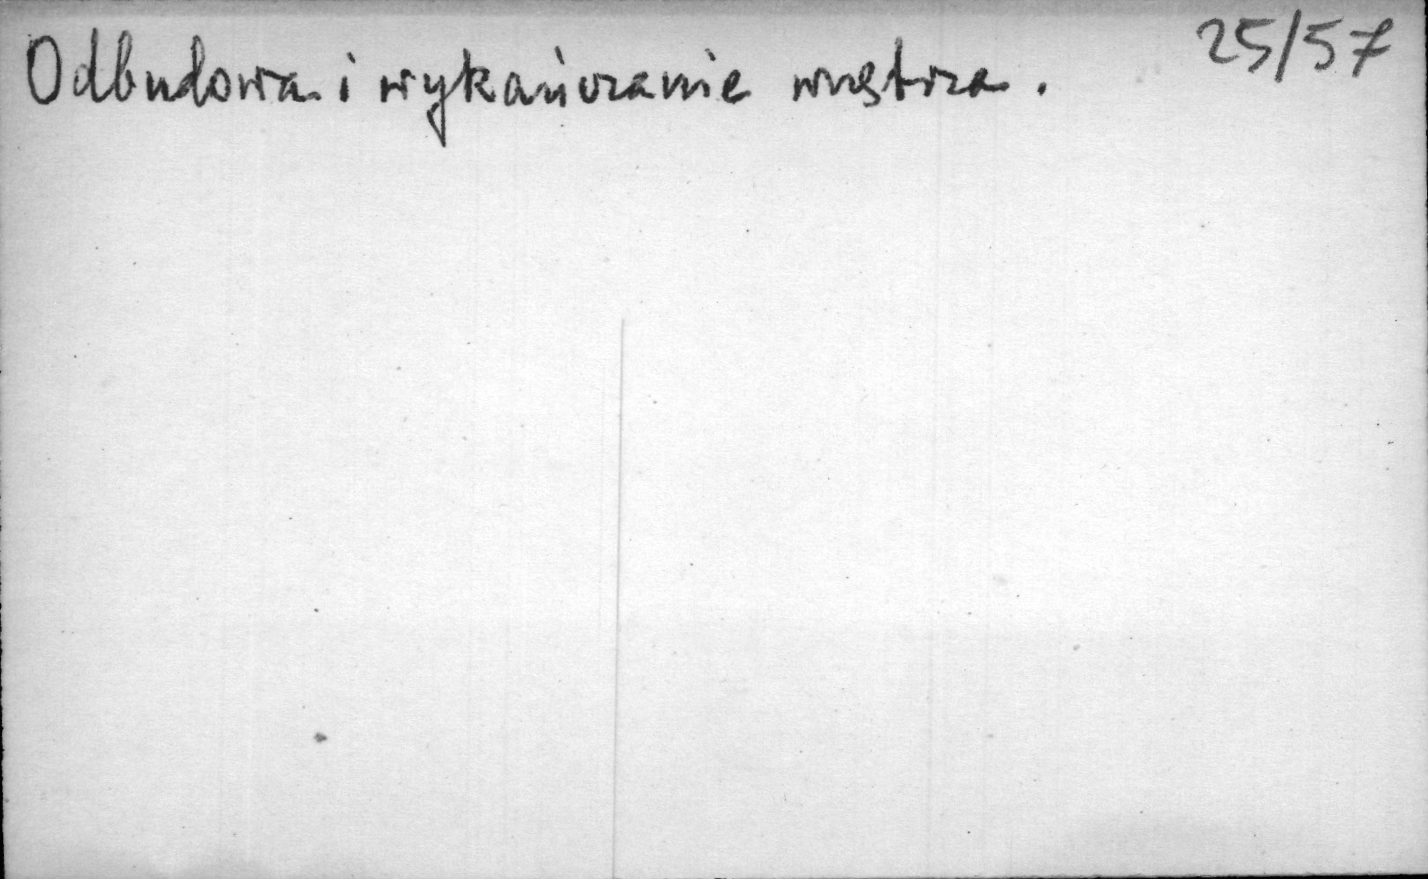 Odbudowa i wykańczanie wnętrza.
25/57